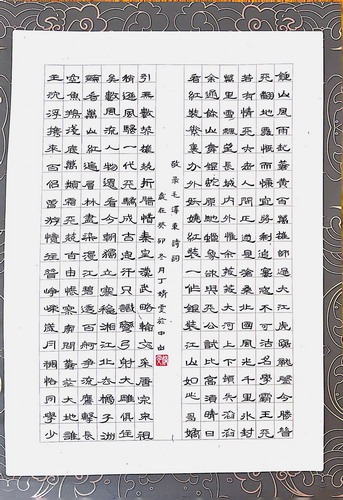 鍾山風雨起蒼黃百萬雄師過大江虎踞龍盤今勝昔
天翻地覆慨而慷宜將剩勇追窮寇不可沽名學霸王天
若有情天亦老人間正道是滄桑北國風光千里冰封
萬里雪飄望長城內外惟余莽莽大河上下頓失滔滔
山舞銀蛇原馳蠟象欲與天公試比高須晴日
看紅裝素裹分外妖嬈紅裝一件銀裝江山如此多嬌
敬录毛澤東詩詞
歲在癸卯冬月丁婧雯於中山
引無數英雄競折腰惜秦皇漢武略輸文采唐宗宋祖
稍遜風騷一代天驕成吉思汗只識彎弓射大雕俱往
矣數風流人物還看今朝獨立寒秋湘江北去橘子洲
頭看萬山紅遍層林盡染漫江碧透百舸爭流鷹擊長
空魚翔淺底萬類霜天競自由悵寥廓問蒼茫大地誰
主沉浮攜來百侶曾游憶往昔崢嶸歲月稠恰同學少